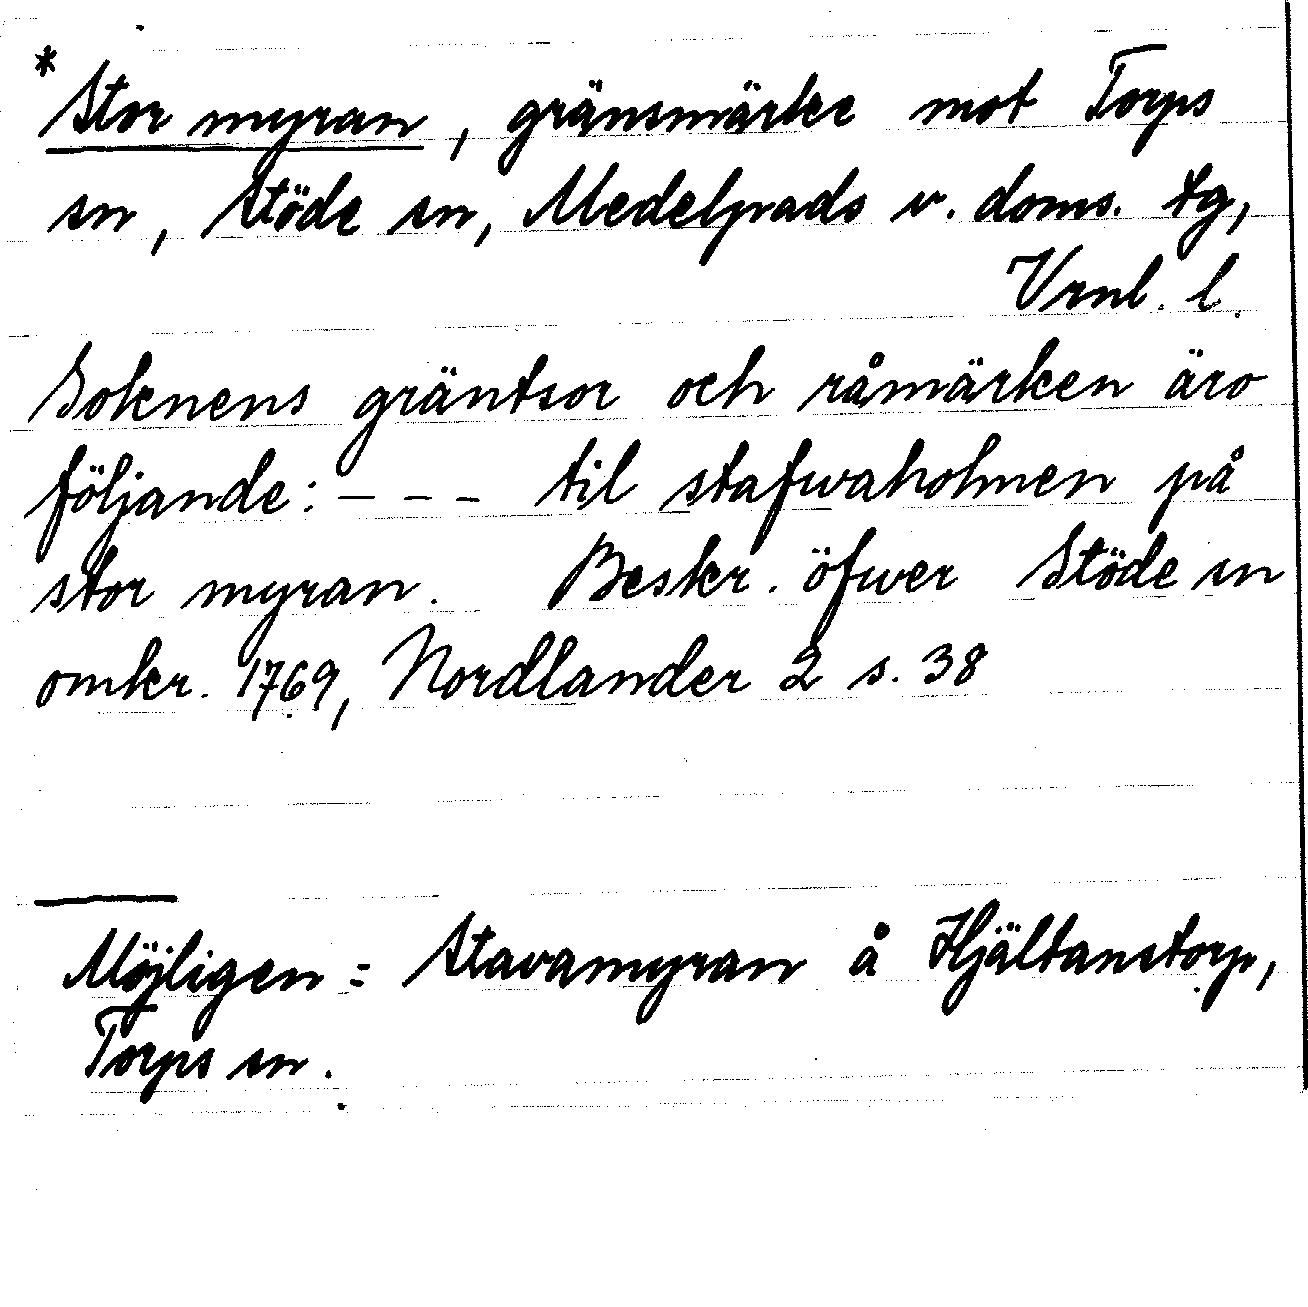 * Stor myran, gränsmärke mot Torps
sn, Stöde sn, Medelpads v. doms. tg,
Vrnl. l.
Soknens gräntsor och råmärken äro
följande: – – – til stafwaholmen på
stor myran. Beskr. öfwer Stöde sn
omkr. 1769, Nordlander 2 s. 38
Möjligen = Stavamyran å Hjältanstorp,
Torps sn.